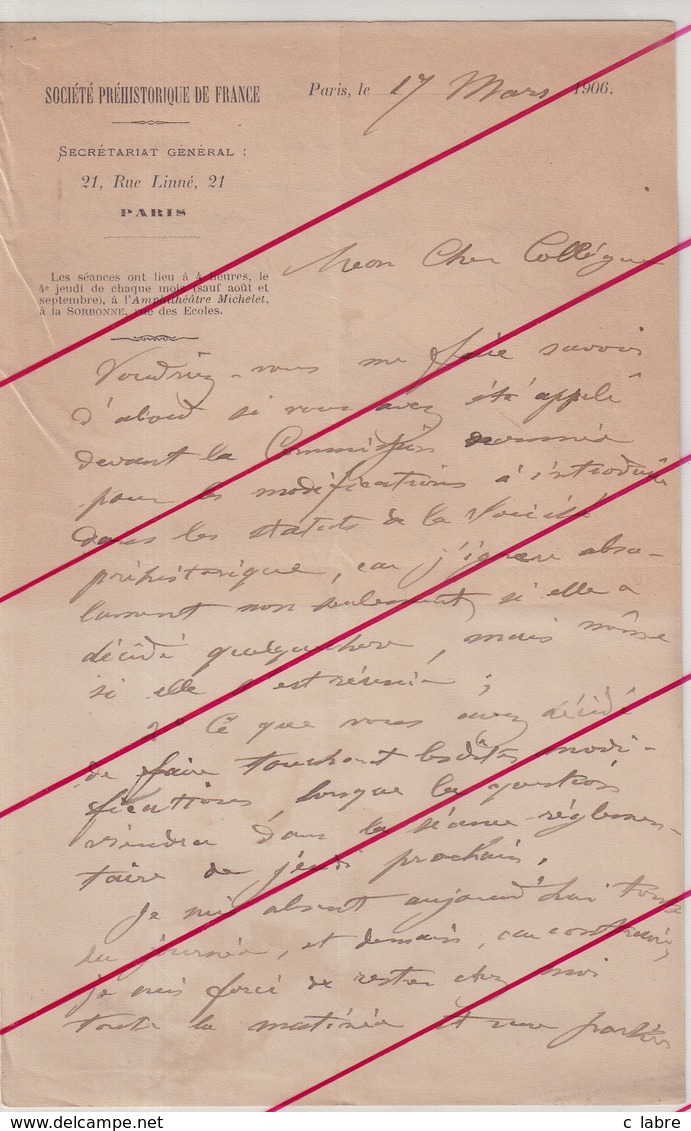 SOCIÉTÉ PRÉHISTORIQUE DE FRANCE
SECRÉTARIAT GÉNÉRAL :
21, Rue Linné, 21
PARIS
Les séances ont lieu à 4 heures, le
4e jeudi de chaque mois (sauf août et
septembre), à l'Amphithéâtre Michelet,
à la SORBONNE, rue des Ecoles.
Paris, le 17 Mars 1906.
Mon Cher Collègue
Voudriez-vous me faire savoir
d'abord si vous avez été applé
devant la Commission nommée
pour les modifications à introduire
dans les statuts de la Société
préhistorique, car j'ignore abso-
lument non seulement si elle a
décidé quelquechose, mais même
si elle s'est réunie ;
2° Ce que vous avez décidé
de faire touchant lesdites modi-
fications lorsque la question
viendra dans la séance réglemen-
taire de jeudi prochain.
Je suis absent aujourd'hui toute
la journée, et demain, au contraire,
je suis forcé de rester chez moi
toute la matinée et une partie
c labre